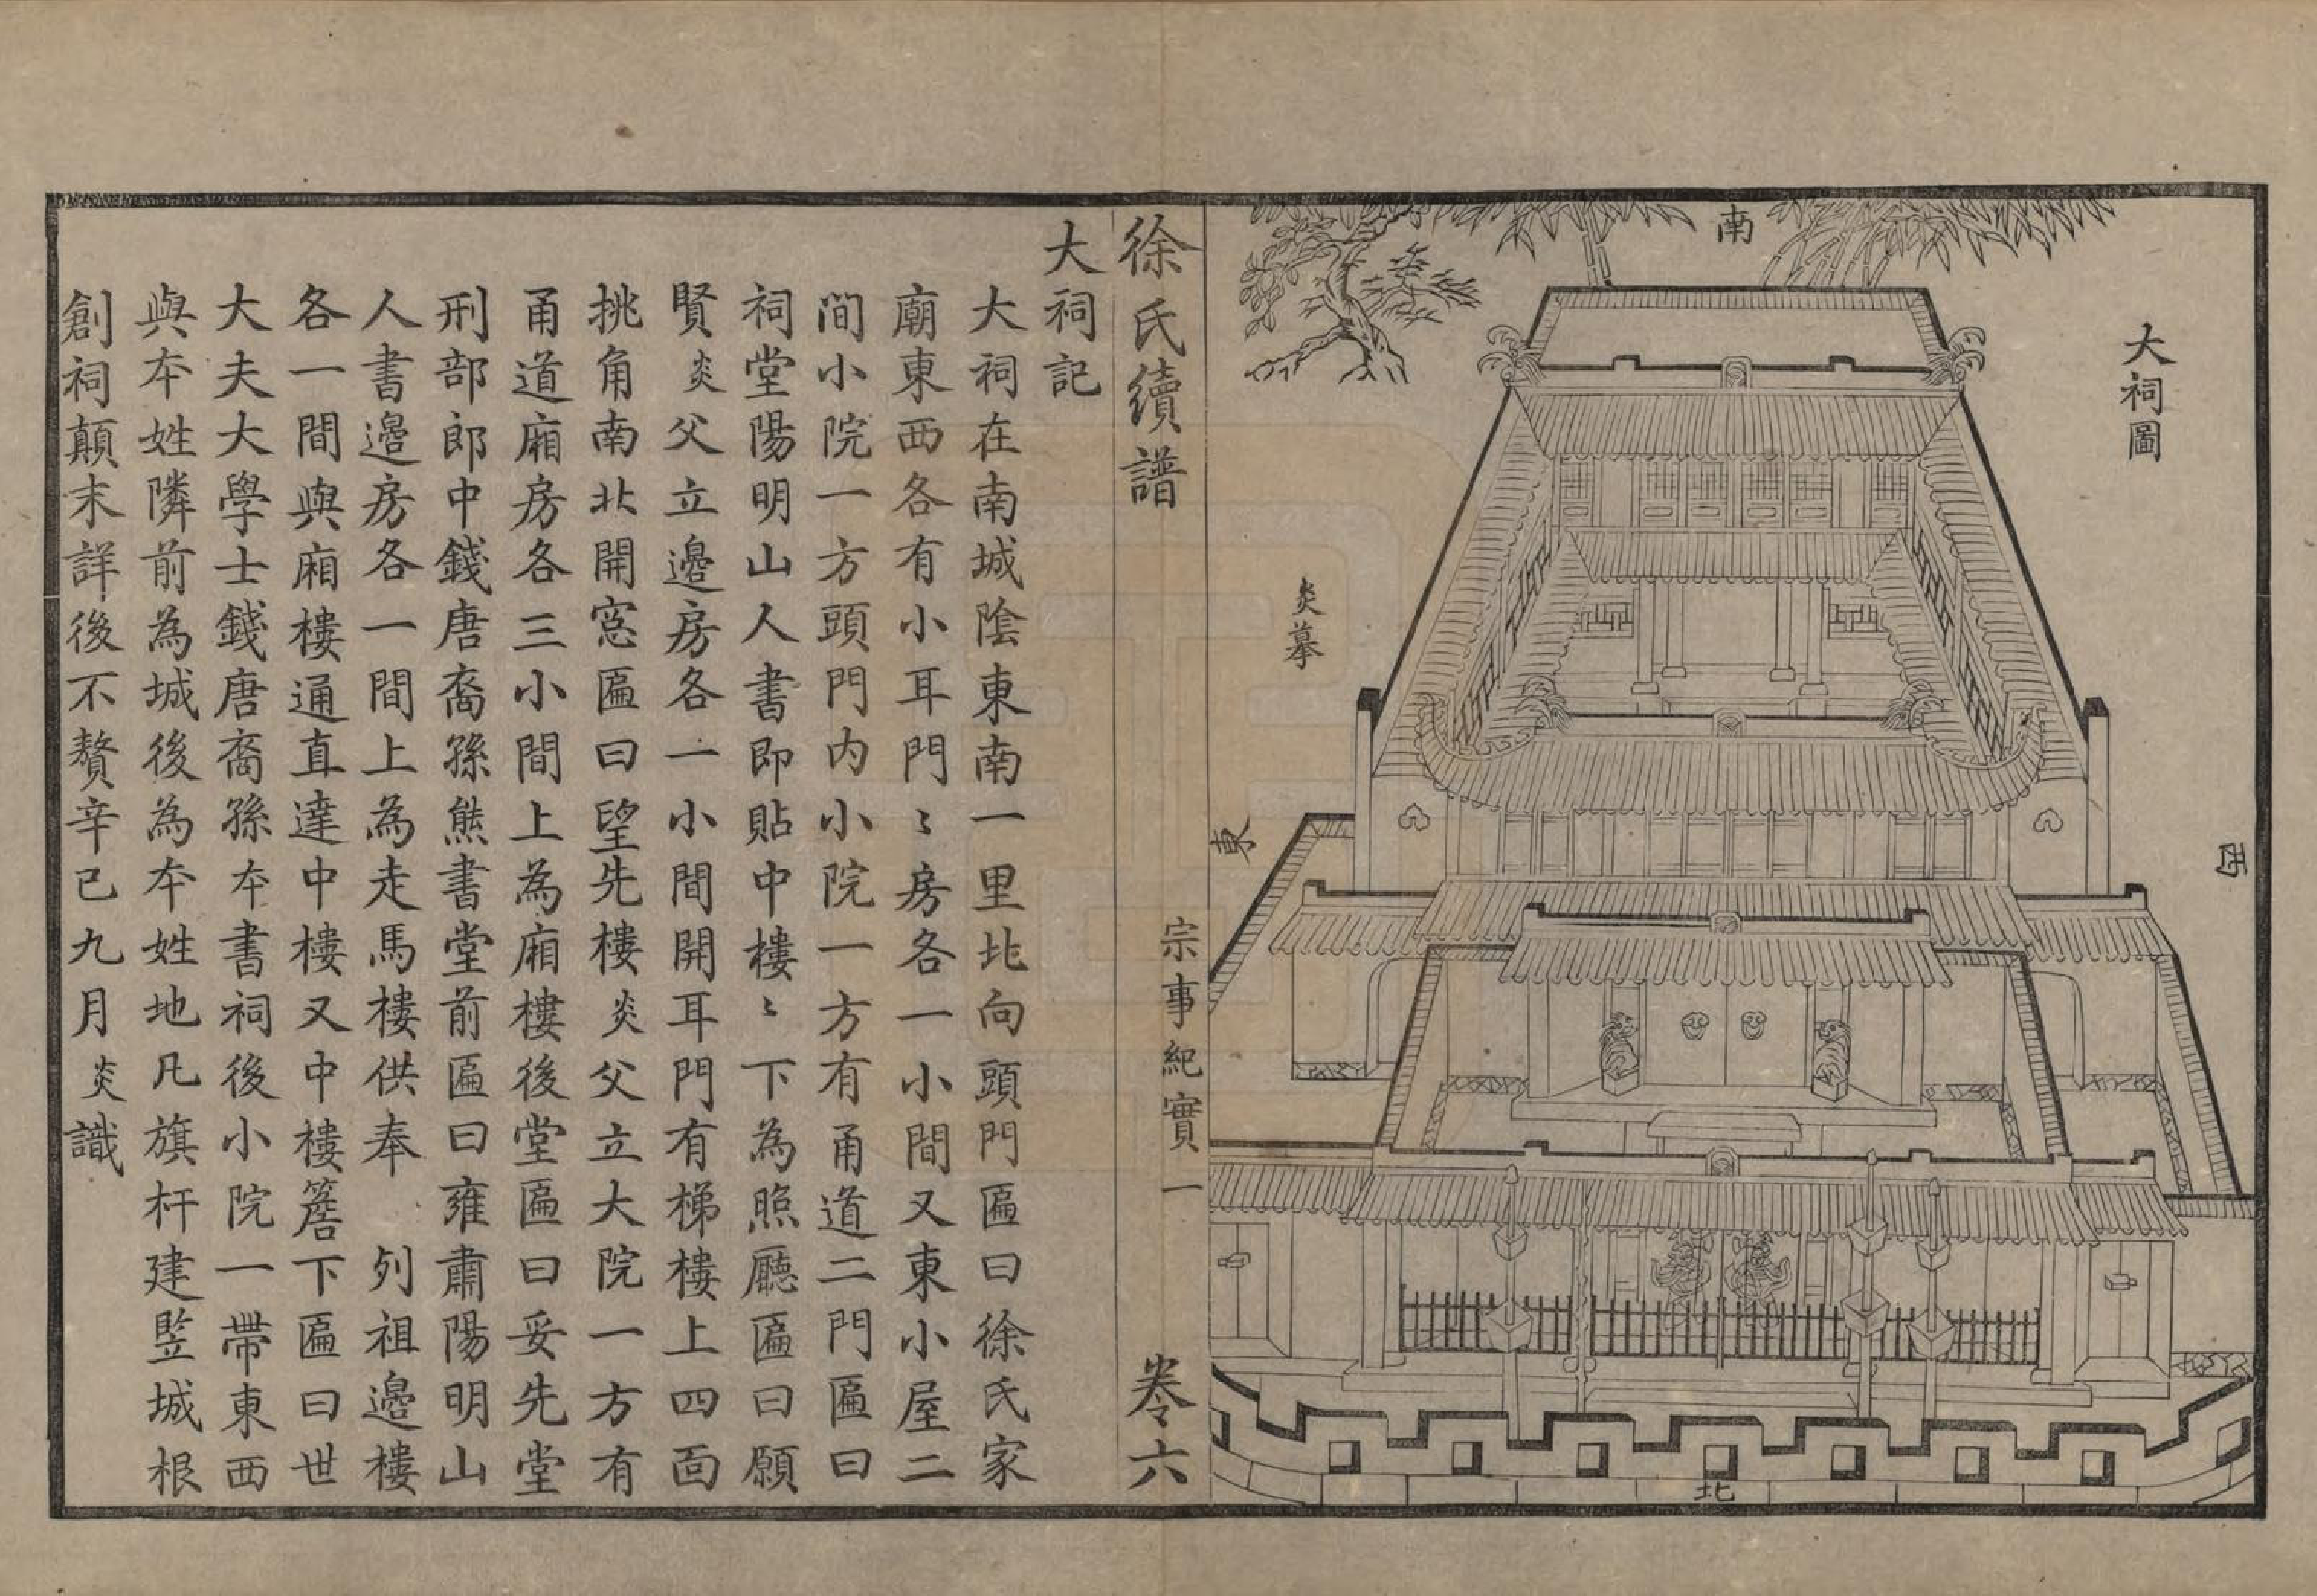 南
大祠圖
炎摹
東
西
北
徐氏續譜
宗事紀實一
卷六
大祠記
大祠在南城陰東南一里北向頭門匾曰徐氏家
廟東西各有小耳門〻房各一小間又東小屋二
間小院一方頭門内小院一方有甬道二門匾曰
祠堂陽明山人書即貼中樓〻下為照廳匾曰願
賢炎父立邊房各一小間開耳門有梯樓上四面
挑角南北開窓匾曰望先樓炎父立大院一方有
甬道廂房各三小間上為廂樓後堂匾曰妥先堂
刑部郎中錢唐裔孫熊書堂前匾曰雍肅陽明山
人書邊房各一間上為走馬樓供奉　列祖邊樓
各一間與廂樓通直達中樓又中樓簷下匾曰世
大夫大學士錢唐裔孫本書祠後小院一帶東西
與本姓隣前為城後為本姓地凡旗杆建竪城根
創祠顛末詳後不贅辛巳九月炎識